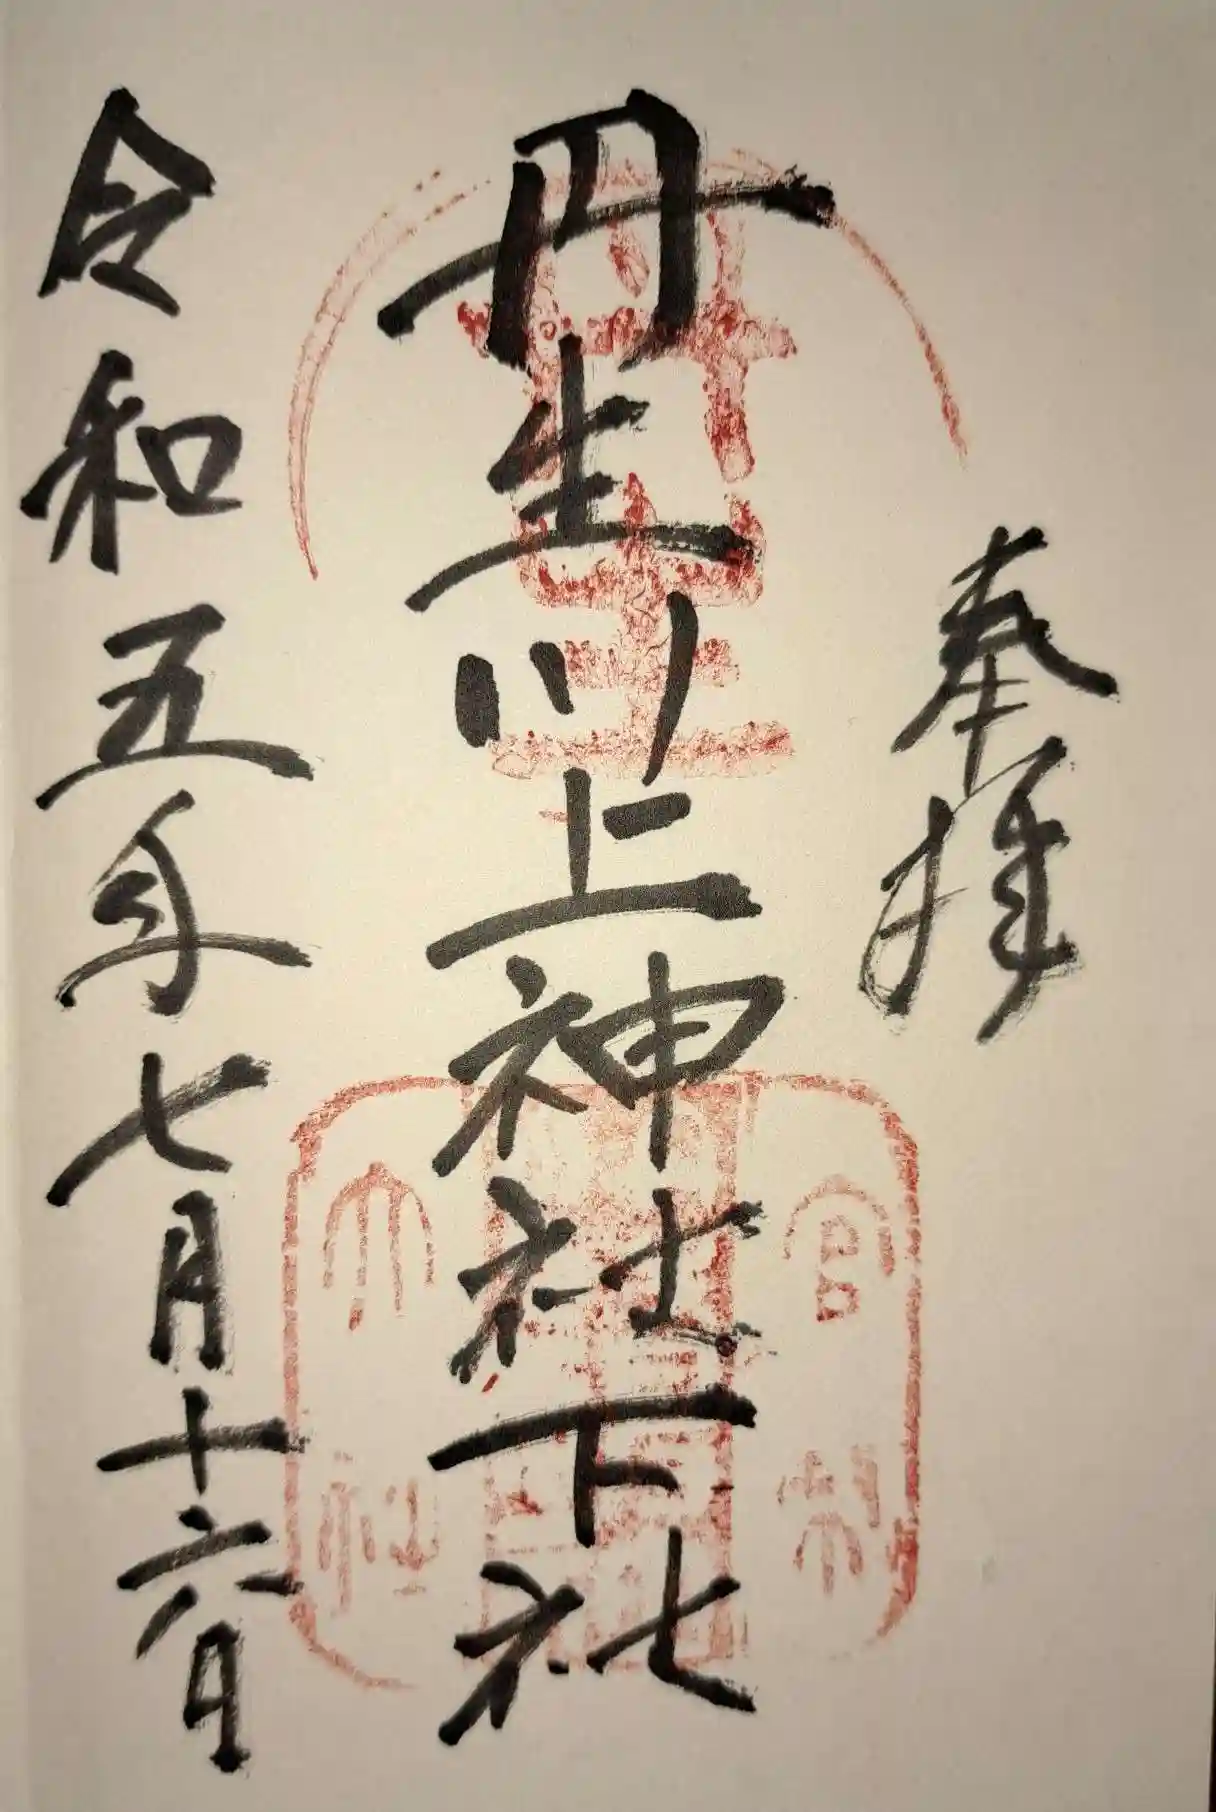 奉拝
丹生川上神社下社
令和五年七月十六日